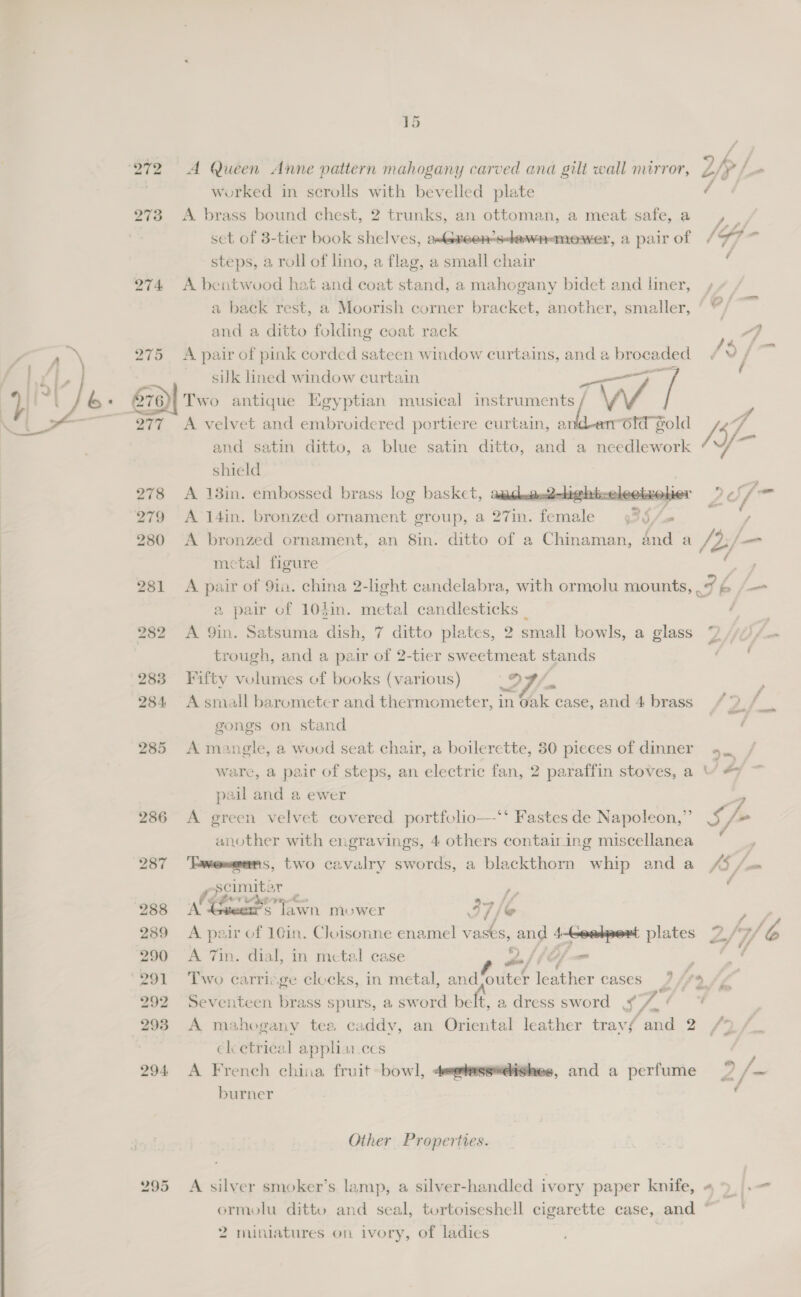 15
272 A Queen Anne pattern mahogany carved and gilt wall mirror,
worked in scrolls with bevelled plate
273 A brass bound chest, 2 trunks, an ottoman, a meat safe, a
set of 3-tier book shelves, a Green's lawn mower, a pair of
steps, a roll of lino, a flag, a small chair
274 A bentwood hat and coat stand, a mahogany bidet and liner,
a back rest, a Moorish corner bracket, another, smaller,
and a ditto folding coat rack
275 A pair of pink corded sateen window curtains, and a brocaded
silk lined window curtain
276 Two antique Egyptian musical instruments W
277 A velvet and embroidered portiere curtain, and an old gold
and satin ditto, a blue satin ditto, and a needlework
shield
278 A 13in. embossed brass log basket, and a 2-light electrolier
279 A 14in. bronzed ornament group, a 27in. female 35/-
280 A bronzed ornament, an 8in. ditto of a Chinaman, and a
metal figure
281 A pair of 9in. china 2-light candelabra, with ormolu mounts,
a pair of 10½in. metal candlesticks
282 A 9in. Satsuma dish, 7 ditto plates, 2 small bowls, a glass
trough, and a pair of 2-tier sweetmeat stands
283 Fifty volumes of books (various)
284 A small barometer and thermometer, in oak case, and 4 brass
gongs on stand
285 A mangle, a wood seat chair, a boilerette, 30 pieces of dinner
ware, a pair of steps, an electric fan, 2 paraffin stoves, a
pail and a ewer
286 A green velvet covered portfolio—“ Fastes de Napoleon,” 5/-
another with engravings, 4 others containing miscellanea
287 Two guns, two cavalry swords, a blackthorn whip and a
scimitar
288 A Green's lawn mower 37/6
289 A pair of 10in. Cloisonne enamel vases, and 4 Coalport plates
290 A 7in. dial, in metal case
291 Two carriage clocks, in metal, and outer leather cases
292 Seventeen brass spurs, a sword belt, a dress sword
293 A mahogany tea caddy, an Oriental leather tray and 2
electrical appliances
294 A French china fruit bowl, 4 glass dishes, and a perfume 2/-
burner
Other Properties.
295 A silver smoker's lamp, a silver-handled ivory paper knife,
ormolu ditto and seal, tortoiseshell cigarette case, and
2 miniatures on ivory, of ladies